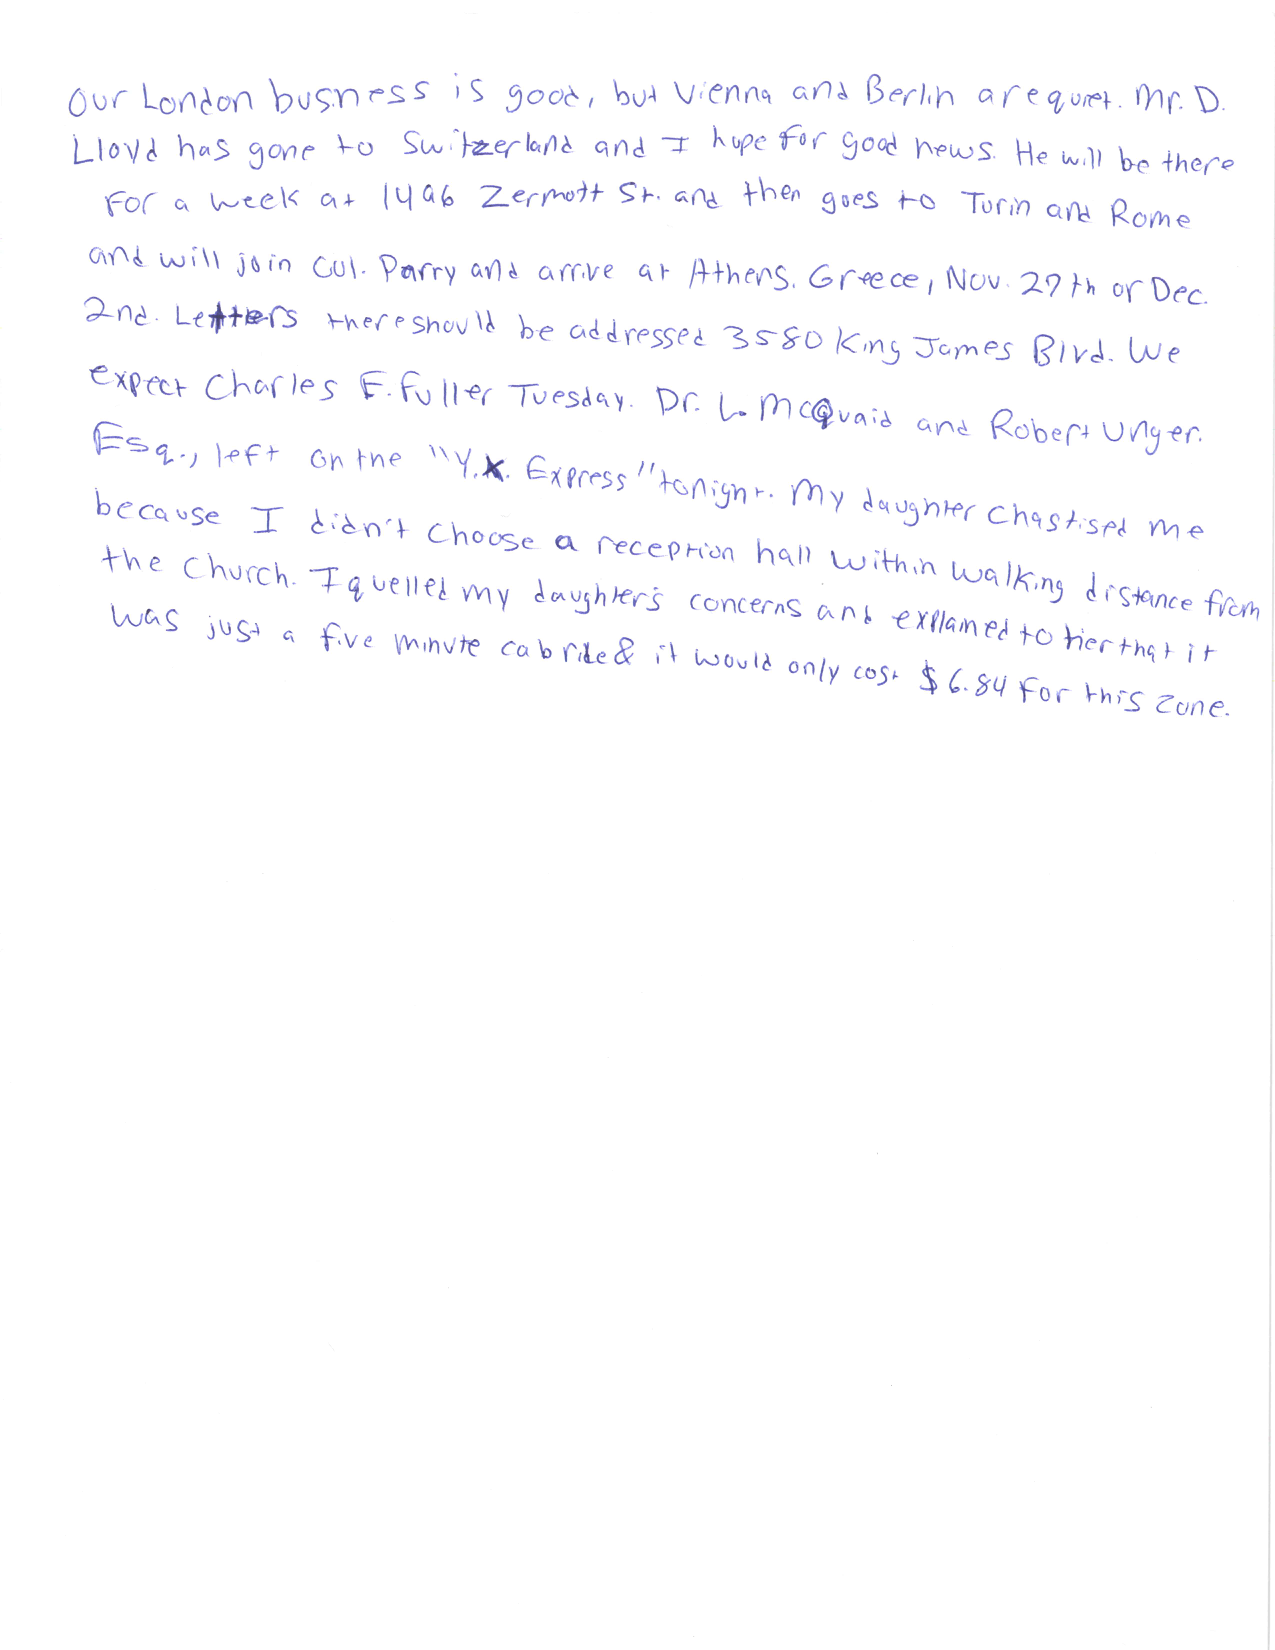 Our London business is good, but Vienna and Berlin are quiet. Mr. D.
Lloyd has gone to Switzerland and I hope for good news. He will be there
for a week at 1496 Zermott St. and then goes to Turin and Rome
and will join Col. Parry and arrive at Athens, Greece, Nov. 27th or Dec.
2nd. Letters there should be addressed 3580 King James Blvd. We
expect Charles E. Fuller Tuesday. Dr. L. McQuaid and Robert Unger.
Esq., left on the "Y.X. Express" tonight. My daughter chastised me
because I didn't choose a reception hall within walking distance from
the church. I quelled my daughter's concerns and explained to her that it
was just a five minute cab ride & it would only cost $6.84 for this zone.